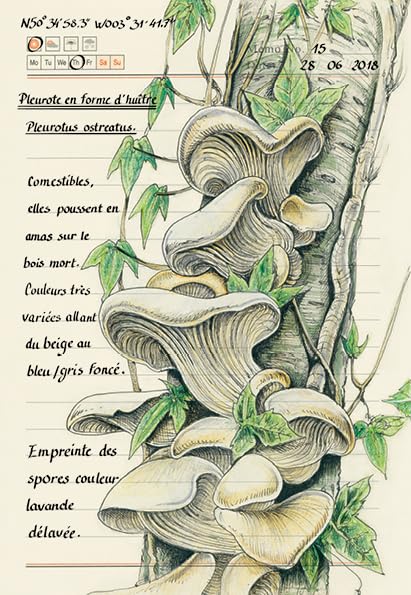 N50°34'58.3" W003°31'41.7"
Memo No. 15
Mo Tu We Th Fr Sa Su
28 06 2018
Pleurote en forme d'huître
Pleurotus ostreatus.
Comestibles,
elles poussent en
amas sur le
bois mort.
Couleurs très
variées allant
du beige au
bleu/gris foncé.
Empreinte des
spores couleur
lavande
délavée.